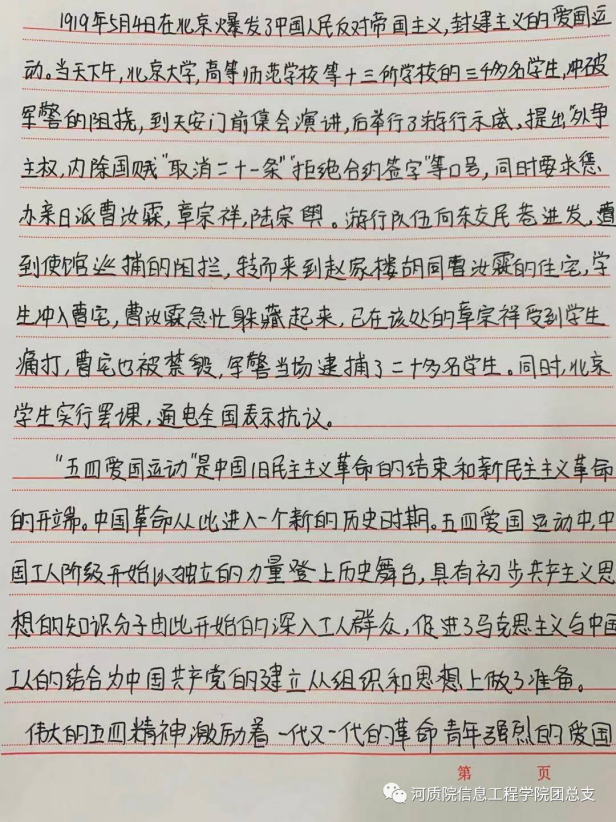 1919年5月4日在北京爆发了中国人民反对帝国主义,封建主义的爱国运
动。当天下午,北京大学,高等师范学校等十三所学校的三千多名学生,冲破
军警的阻挠,到天安门前集会演讲,后举行了游行示威、提出“外争
主权,内除国贼”“取消二十一条”“拒绝合约签字”等口号,同时要求惩
办亲日派曹汝霖,章宗祥,陆宗舆。游行队伍向东交民巷进发,遭
到使馆巡捕的阻拦,转而来到赵家楼胡同曹汝霖的住宅,学
生冲入曹宅,曹汝霖急忙躲藏起来,已在该处的章宗祥受到学生
痛打,曹宅也被焚毁,军警当场逮捕了二十多名学生。同时,北京
学生实行罢课,通电全国表示抗议。
“五四爱国运动”是中国旧民主主义革命的结束和新民主主义革命
的开端。中国革命从此进入一个新的历史时期。五四爱国运动中,中
国工人阶级开始以独立的力量登上历史舞台,具有初步共产主义思
想的知识分子由此开始的深入工人群众,促进了马克思主义与中国
工人的结合为中国共产党的建立从组织和思想上做了准备。
伟大的五四精神激励着一代又一代的革命青年强烈的爱国
第 页
河质院信息工程学院团总支